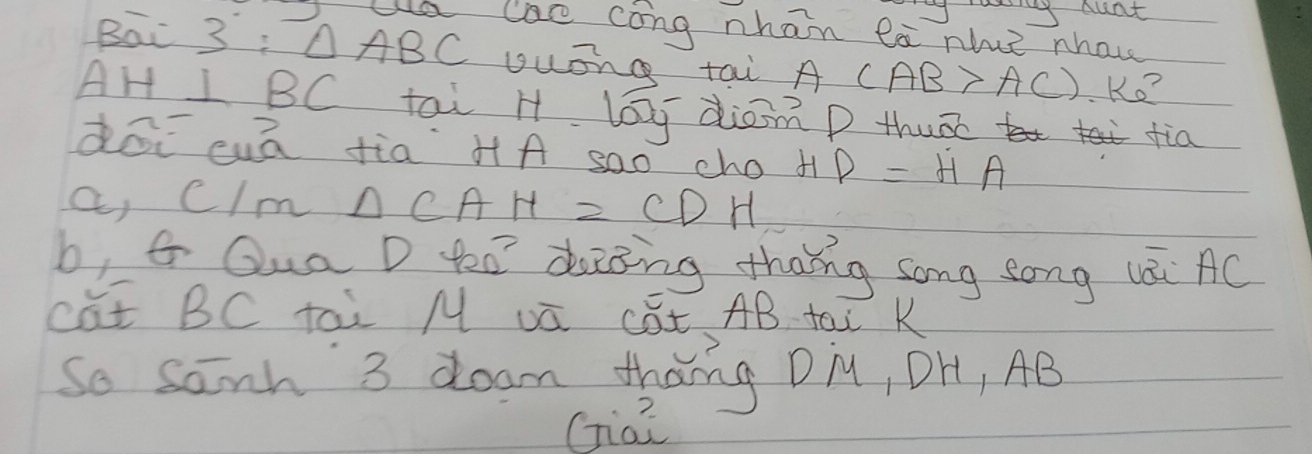 của các công nhân là như nhau
Bài 3 : Δ ABC vuông tại A (AB > AC). Kẻ
AH ⊥ BC tại H. lấy điểm D thuộc tia
đối của tia HA sao cho HD = HA
a, C/m Δ CAH = CDH
b, Qua D kẻ đường thẳng song song với AC
cắt BC tại M và cắt AB tại K
So sánh 3 đoạn thẳng DM, DH, AB
Giải